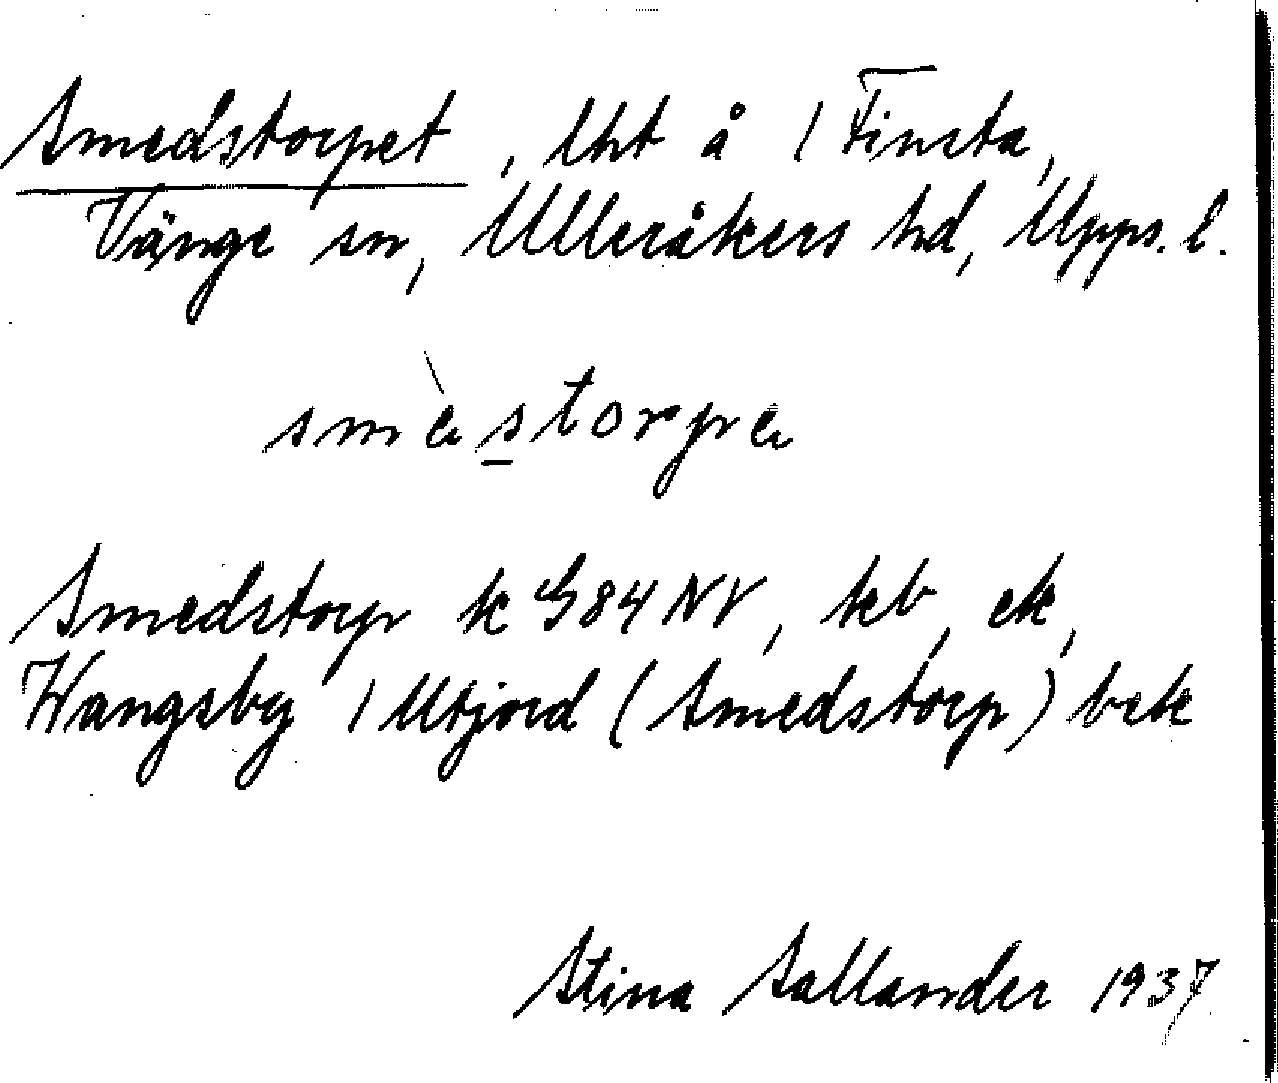 Smedstorpet, lht å 1 Finsta,
Vänge sn, Ulleråkers hd, Upps. l.
smèstorpe
Smedstorp k G84NV, kb, ek,
Wangsby 1 Utjord (Smedstorp) bek
Stina Sallander 1937